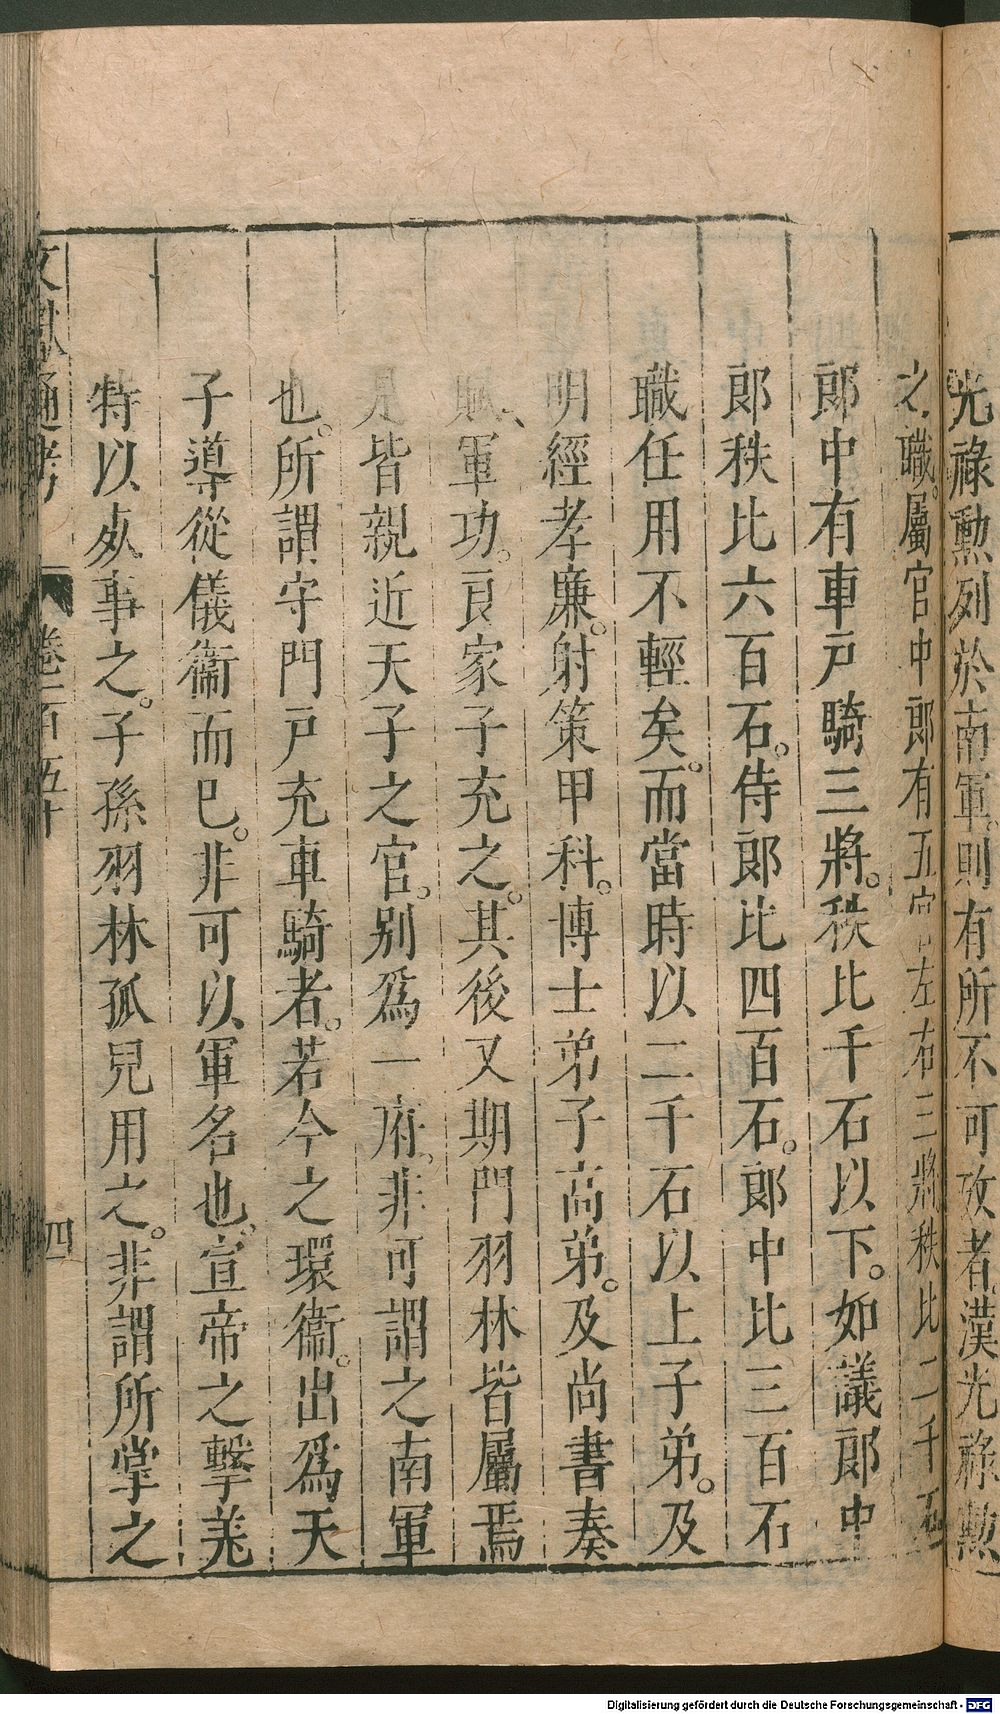 光祿勲列於南軍則有所不可攷者漢光祿勲
之職。屬官中郎有五官左右三將秩比二千石
郎中有車戸騎三將。秩比千石以下。如議郎中
郎秩比六百石。侍郎比四百石。郎中比三百石
職任用不輕矣。而當時以二千石以上子弟。及
明經孝廉。射策甲科。博士弟子高弟。及尚書奏
賦、軍功。良家子充之。其後又期門羽林皆屬焉
是皆親近天子之官。别爲一府。非可謂之南軍
也。所謂守門戸充車騎者。若今之環衞。出爲天
子導從儀衞而已。非可以軍名也。宣帝之擊羌
特以从事之。子孫羽林孤兒用之。非謂所掌之
文獻通考 卷一百五十 四
Digitalisierung gefördert durch die Deutsche Forschungsgemeinschaft - DFG